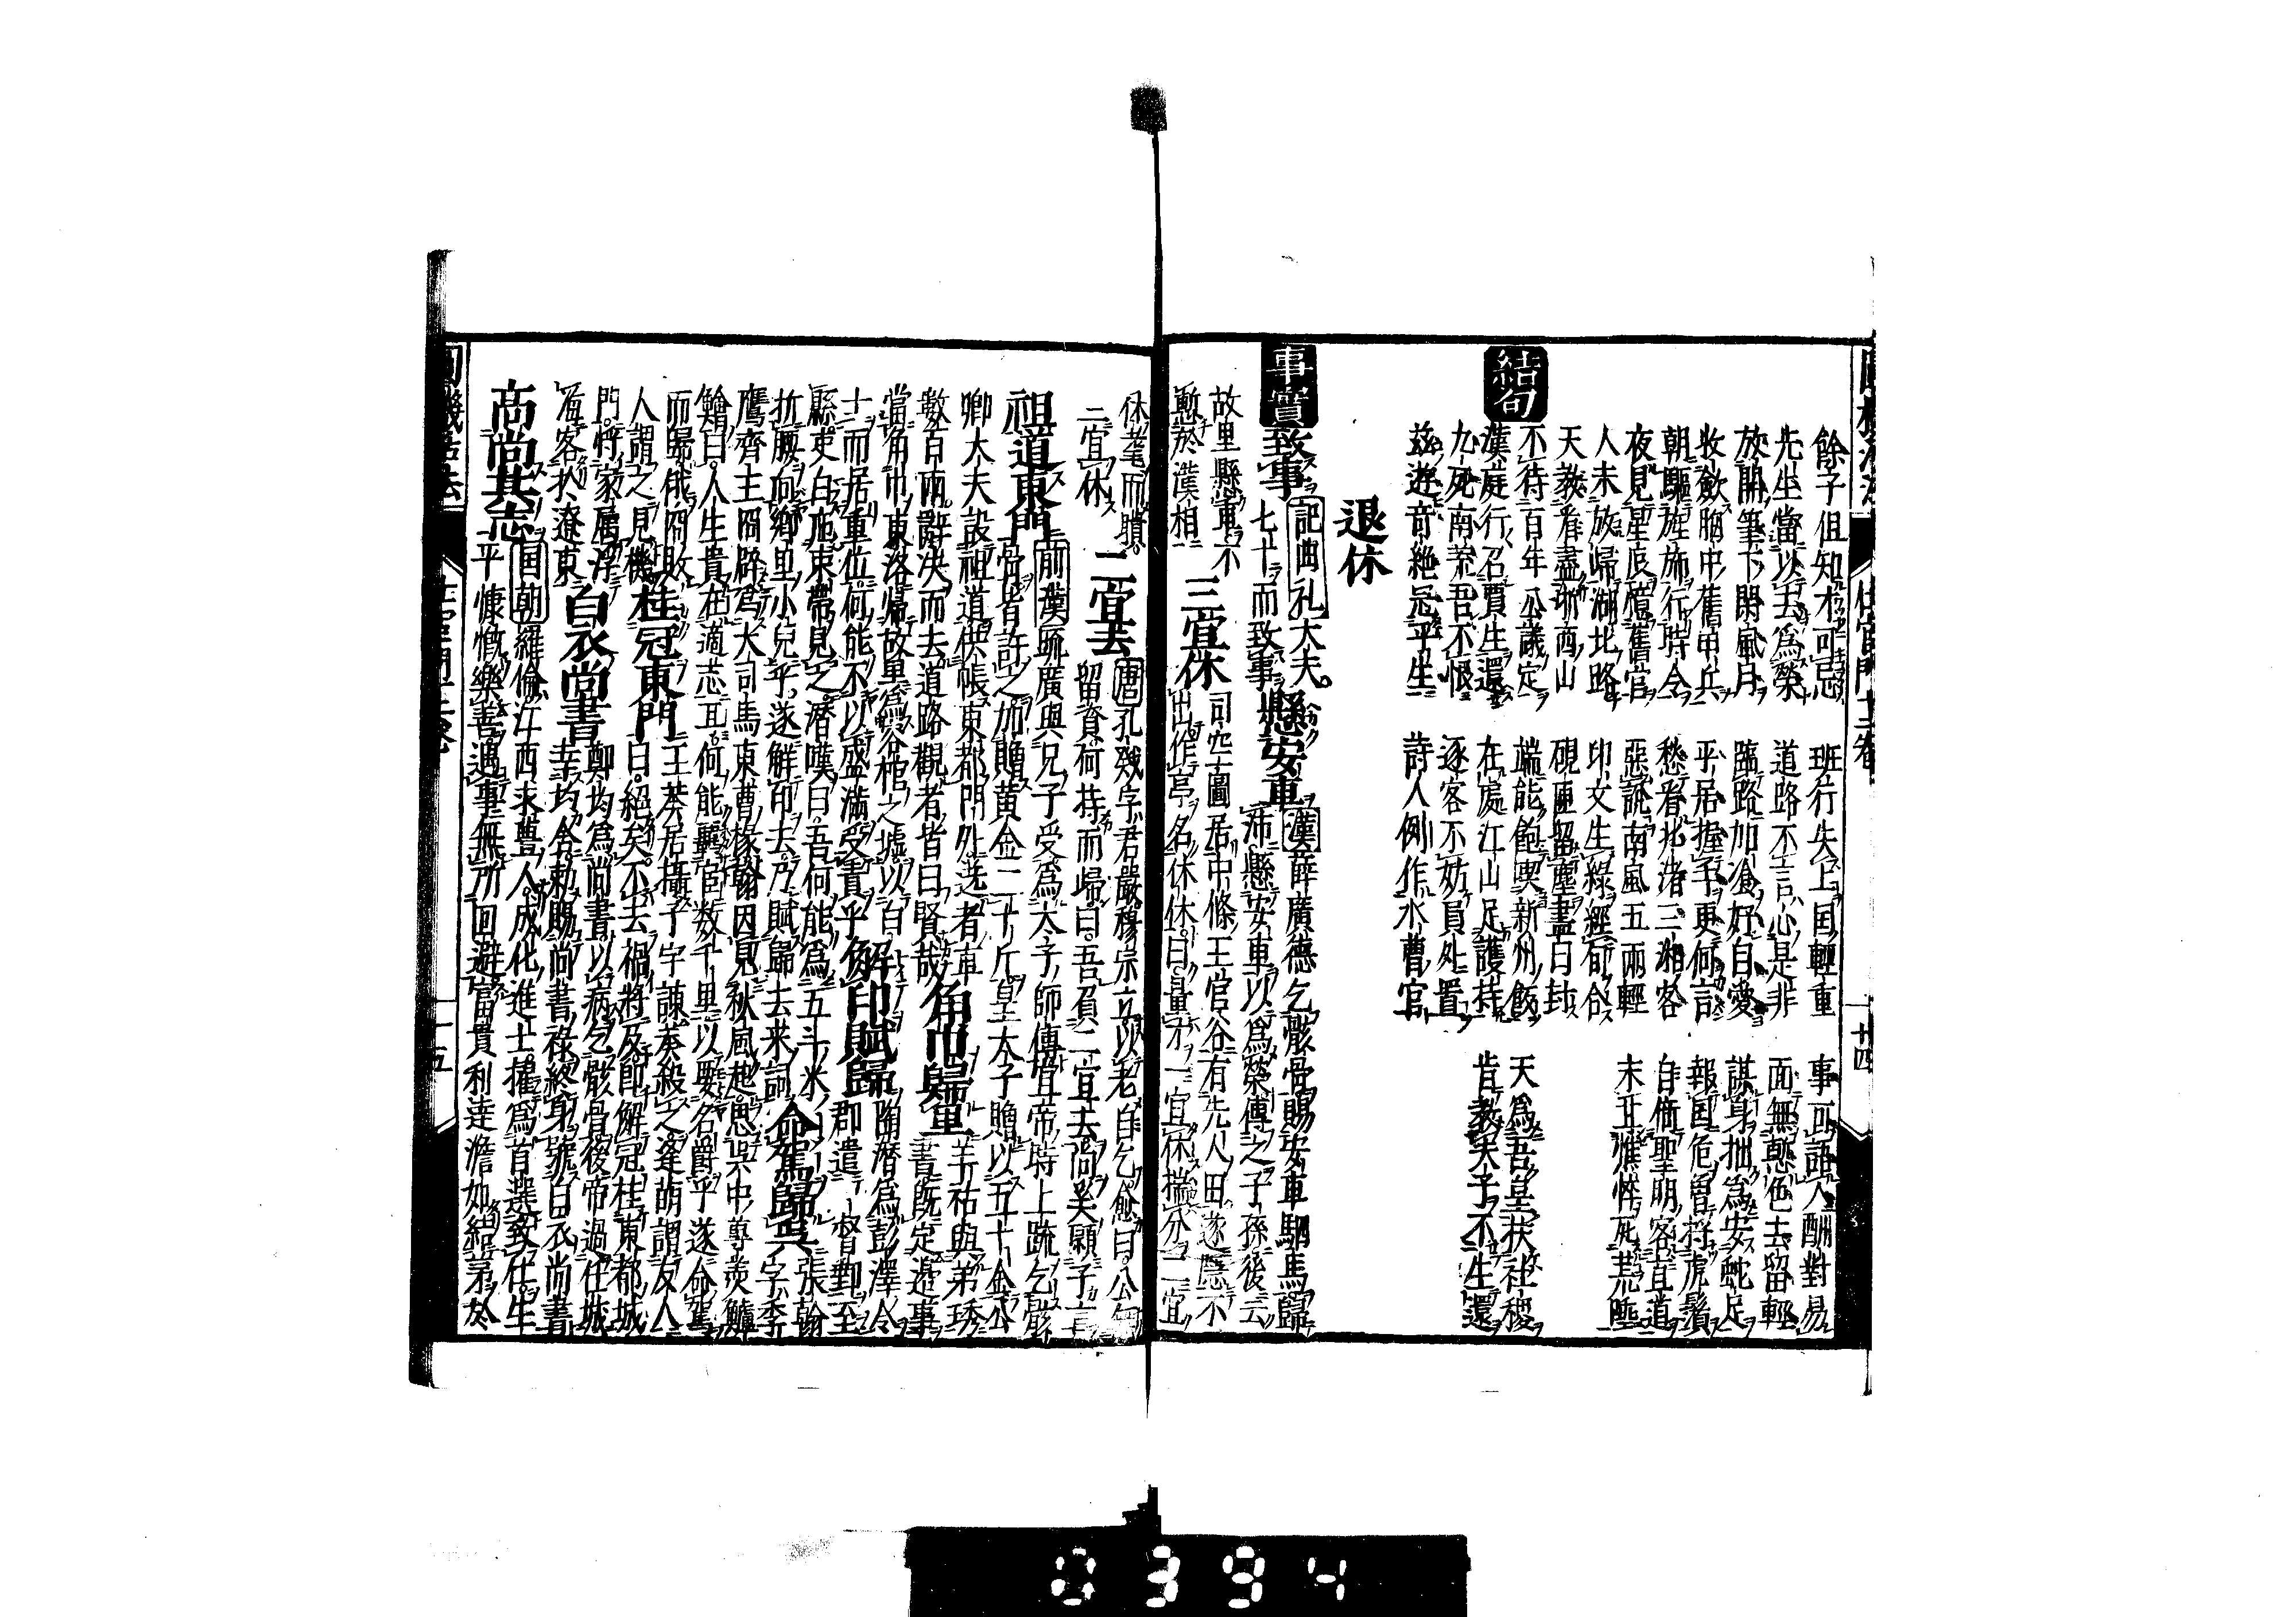 餘子但知才可忌　班行失上国輕重　事可語人酬對易
先生當以去為榮　道路不言心是非　面無慙色去留輕
放開筆下閑風月　臨路加飡好自愛　謀身拙為安蛇足
收歛胸中舊甲兵　平居握手更何言　報国危曽捋虎鬚
朝驅旌旆行時令　愁看北渚三湘客　自倚聖明容直道
夜見星辰憶舊官　惡說南風五兩輕　末应憔悴死荒陲
人未放歸湖北路　印文生綠經旬合
天教看盡浙西山　硯匣留塵盡日封
結句
不待百年公議定　端能飽喫新州飯　天為吾皇扶社稷
漢庭行召賈生還　在處江山足護持　肯教夫子不生還
九死南荒吾不恨　逐客不妨員外置
茲遊奇絶冠平生　詩人例作水曹官
退休
事實
致事　記曲礼大夫
七十而致事　懸安車　漢薛廣德乞骸骨賜安車駟馬歸
沛縣懸安車以為榮傳之子孫後云
故里縣車不
慙於漢相　三宜休　司空圖居中條王官谷有先人田遂隱不
出作亭名休休曰量才一宜休揣分二宜
休耄而聵
三宜休　二宜去　唐孔戣字君嚴穆宗立以老自乞愈曰公
留資何持而歸曰吾負二宜去尚奚顧子言
祖道東門　前漢疏廣與兄子受為太子師傅宣帝時上疏乞骸
骨皆許之加贈黄金二十斤皇太子贈以五十金公
卿大夫設祖道供帳東都門外送者車
數百兩辭決而去道路觀者皆曰賢哉　角巾歸里　羊祜與弟琇
書既定邊事
當角巾東洛歸故里為容棺之墟以白
士而居重位何能不以盛滿受責乎　解印賦歸　陶潜為彭澤令
郡遣督郵至
縣吏白應束帶見之潜嘆曰吾何能為五斗米
折腰向鄉里小兒乎遂解印去乃賦歸去来詞　命駕歸吳　張翰
字季
鷹齊王冏辟為大司馬東曹掾翰因見秋風起思吳中蓴羮鱸
鱠曰人生貴在適志耳何能羈宦数千里以要名爵乎遂命駕
而歸俄冏敗
人謂之見機　挂冠東門　王莽居攝子宇諫莽殺之逢萌謂友人
曰絕矣不去禍將及即解冠挂東都城
門將家屬浮
海客於遼東　白衣尚書　鄭均為尚書以病乞骸骨後帝過任城
幸均舍勅賜尚書祿終身號白衣尚書
高尚其志　国朝羅倫江西永豊人成化進士擢為首選致仕生
平慷慨樂善遇事無所回避富貴利達澹如結茅於
十四
十五
0394